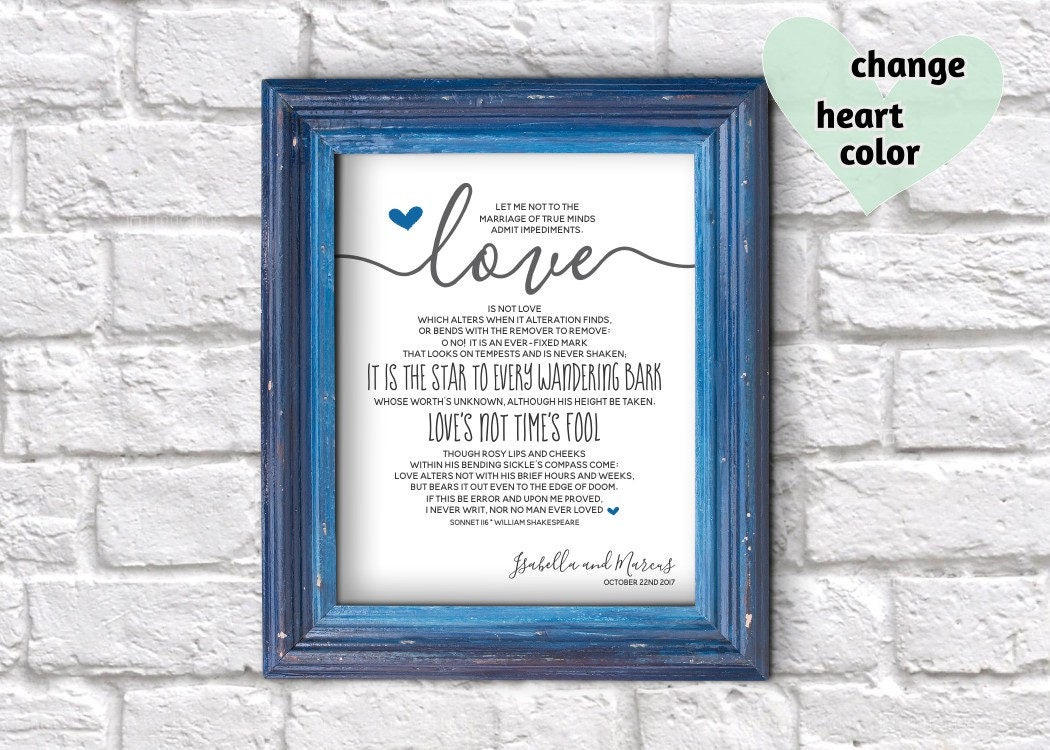 change
heart
color
LET ME NOT TO THE
MARRIAGE OF TRUE MINDS
ADMIT IMPEDIMENTS.
love
IS NOT LOVE
WHICH ALTERS WHEN IT ALTERATION FINDS,
OR BENDS WITH THE REMOVER TO REMOVE:
O NO! IT IS AN EVER-FIXED MARK
THAT LOOKS ON TEMPESTS AND IS NEVER SHAKEN;
IT IS THE STAR TO EVERY WANDERING BARK
WHOSE WORTH'S UNKNOWN, ALTHOUGH HIS HEIGHT BE TAKEN.
LOVE'S NOT TIME'S FOOL
THOUGH ROSY LIPS AND CHEEKS
WITHIN HIS BENDING SICKLE'S COMPASS COME:
LOVE ALTERS NOT WITH HIS BRIEF HOURS AND WEEKS,
BUT BEARS IT OUT EVEN TO THE EDGE OF DOOM.
IF THIS BE ERROR AND UPON ME PROVED,
I NEVER WRIT, NOR NO MAN EVER LOVED
SONNET 116 * WILLIAM SHAKESPEARE
Isabella and Marcus
OCTOBER 22ND 2017